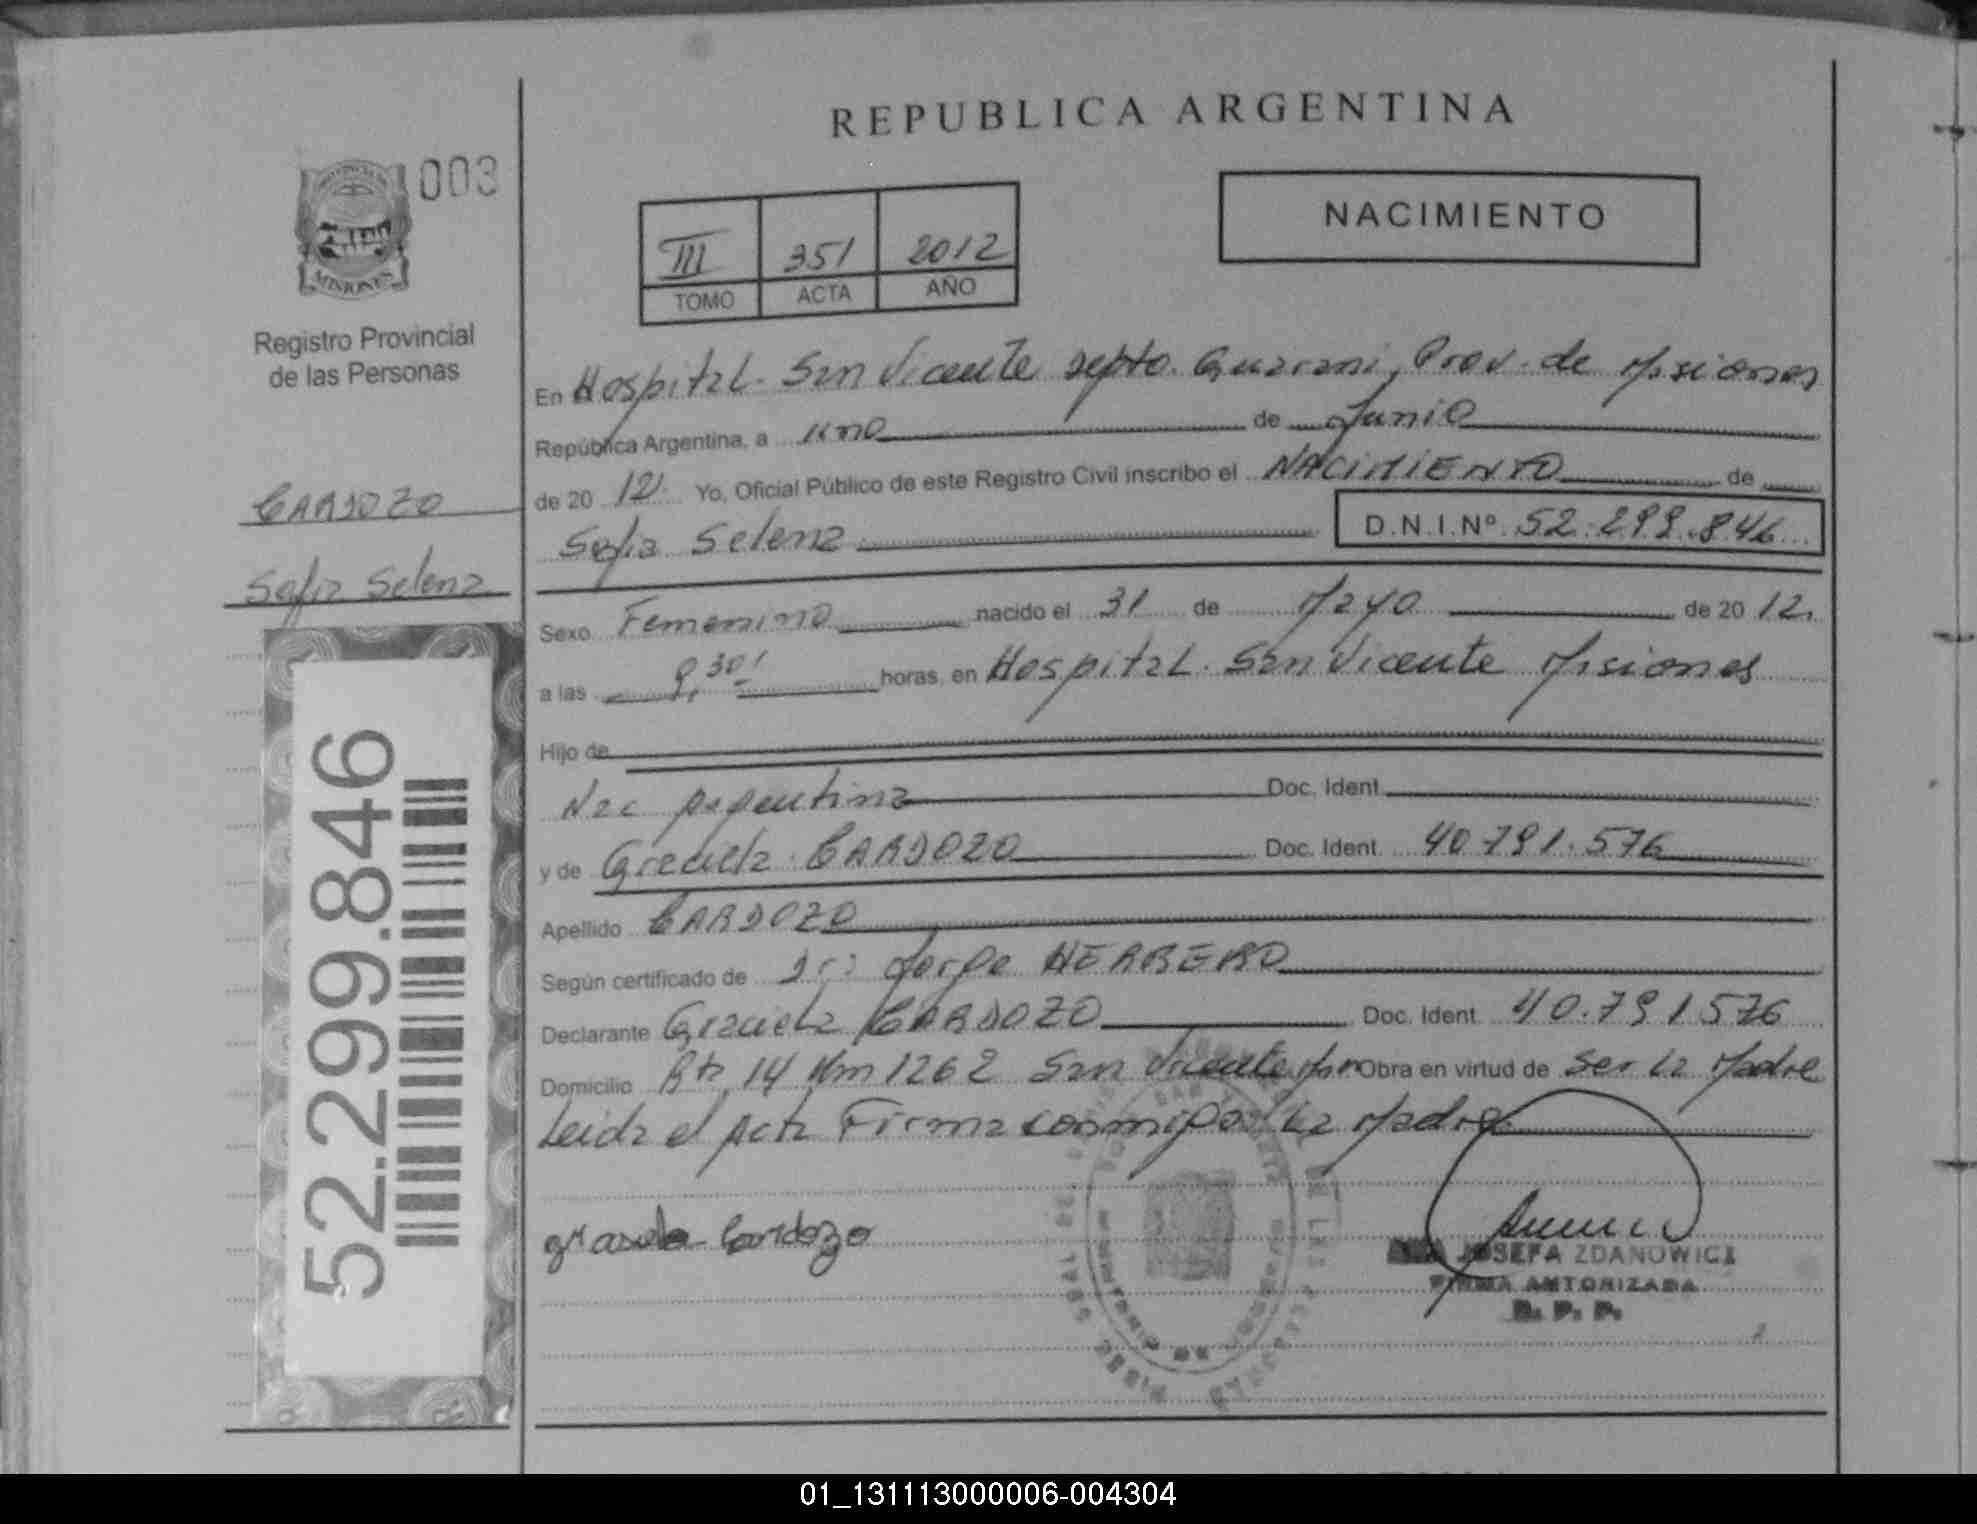 REPUBLICA ARGENTINA
003
MISIONES
Registro Provincial
de las Personas
CARDOZO
Sofia Selena
52.299.846
NACIMIENTO
III 351 2012
TOMO ACTA AÑO
En Hospital San Vicente Depto. Guarani, Prov. de Misiones
República Argentina, a uno de Junio
de 20 12 Yo, Oficial Público de este Registro Civil inscribo el NACIMIENTO de
Sofia Selena D.N.I.Nº 52.299.846
Sexo Femenino nacido el 31 de Mayo de 20 12.
a las 8,30' horas, en Hospital San Vicente Misiones
Hijo de
Nac Argentina Doc. Ident.
y de Graciela CARDOZO Doc. Ident. 40.791.576
Apellido CARDOZO
Según certificado de Dr: Jorge HERRERO
Declarante Graciela CARDOZO Doc. Ident. 40.791.576
Domicilio Rta 14 Km 1262 San Vicente Mnes Obra en virtud de ser la Madre
Leida el Acta Firma conmigo la Madre
Graciela Cardozo
JOSEFA ZDANOWICZ
FIRMA AUTORIZADA
R. P. P.
01_131113000006-004304